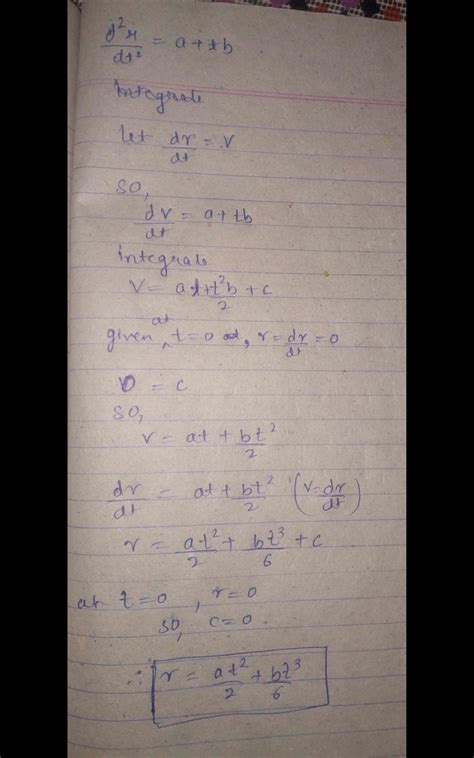 d²r/dt² = a + tb
Integrate
let dr/dt = v
so,
dv/dt = a + tb
integrate
V = at + t²b/2 + c
given, at t=0, r = dr/dt = 0
0 = c
so,
v = at + bt²/2
dr/dt = at + bt²/2 (v = dr/dt)
r = at²/2 + bt³/6 + c
at t=0, r=0
so, c=0.
∴ r = at²/2 + bt³/6